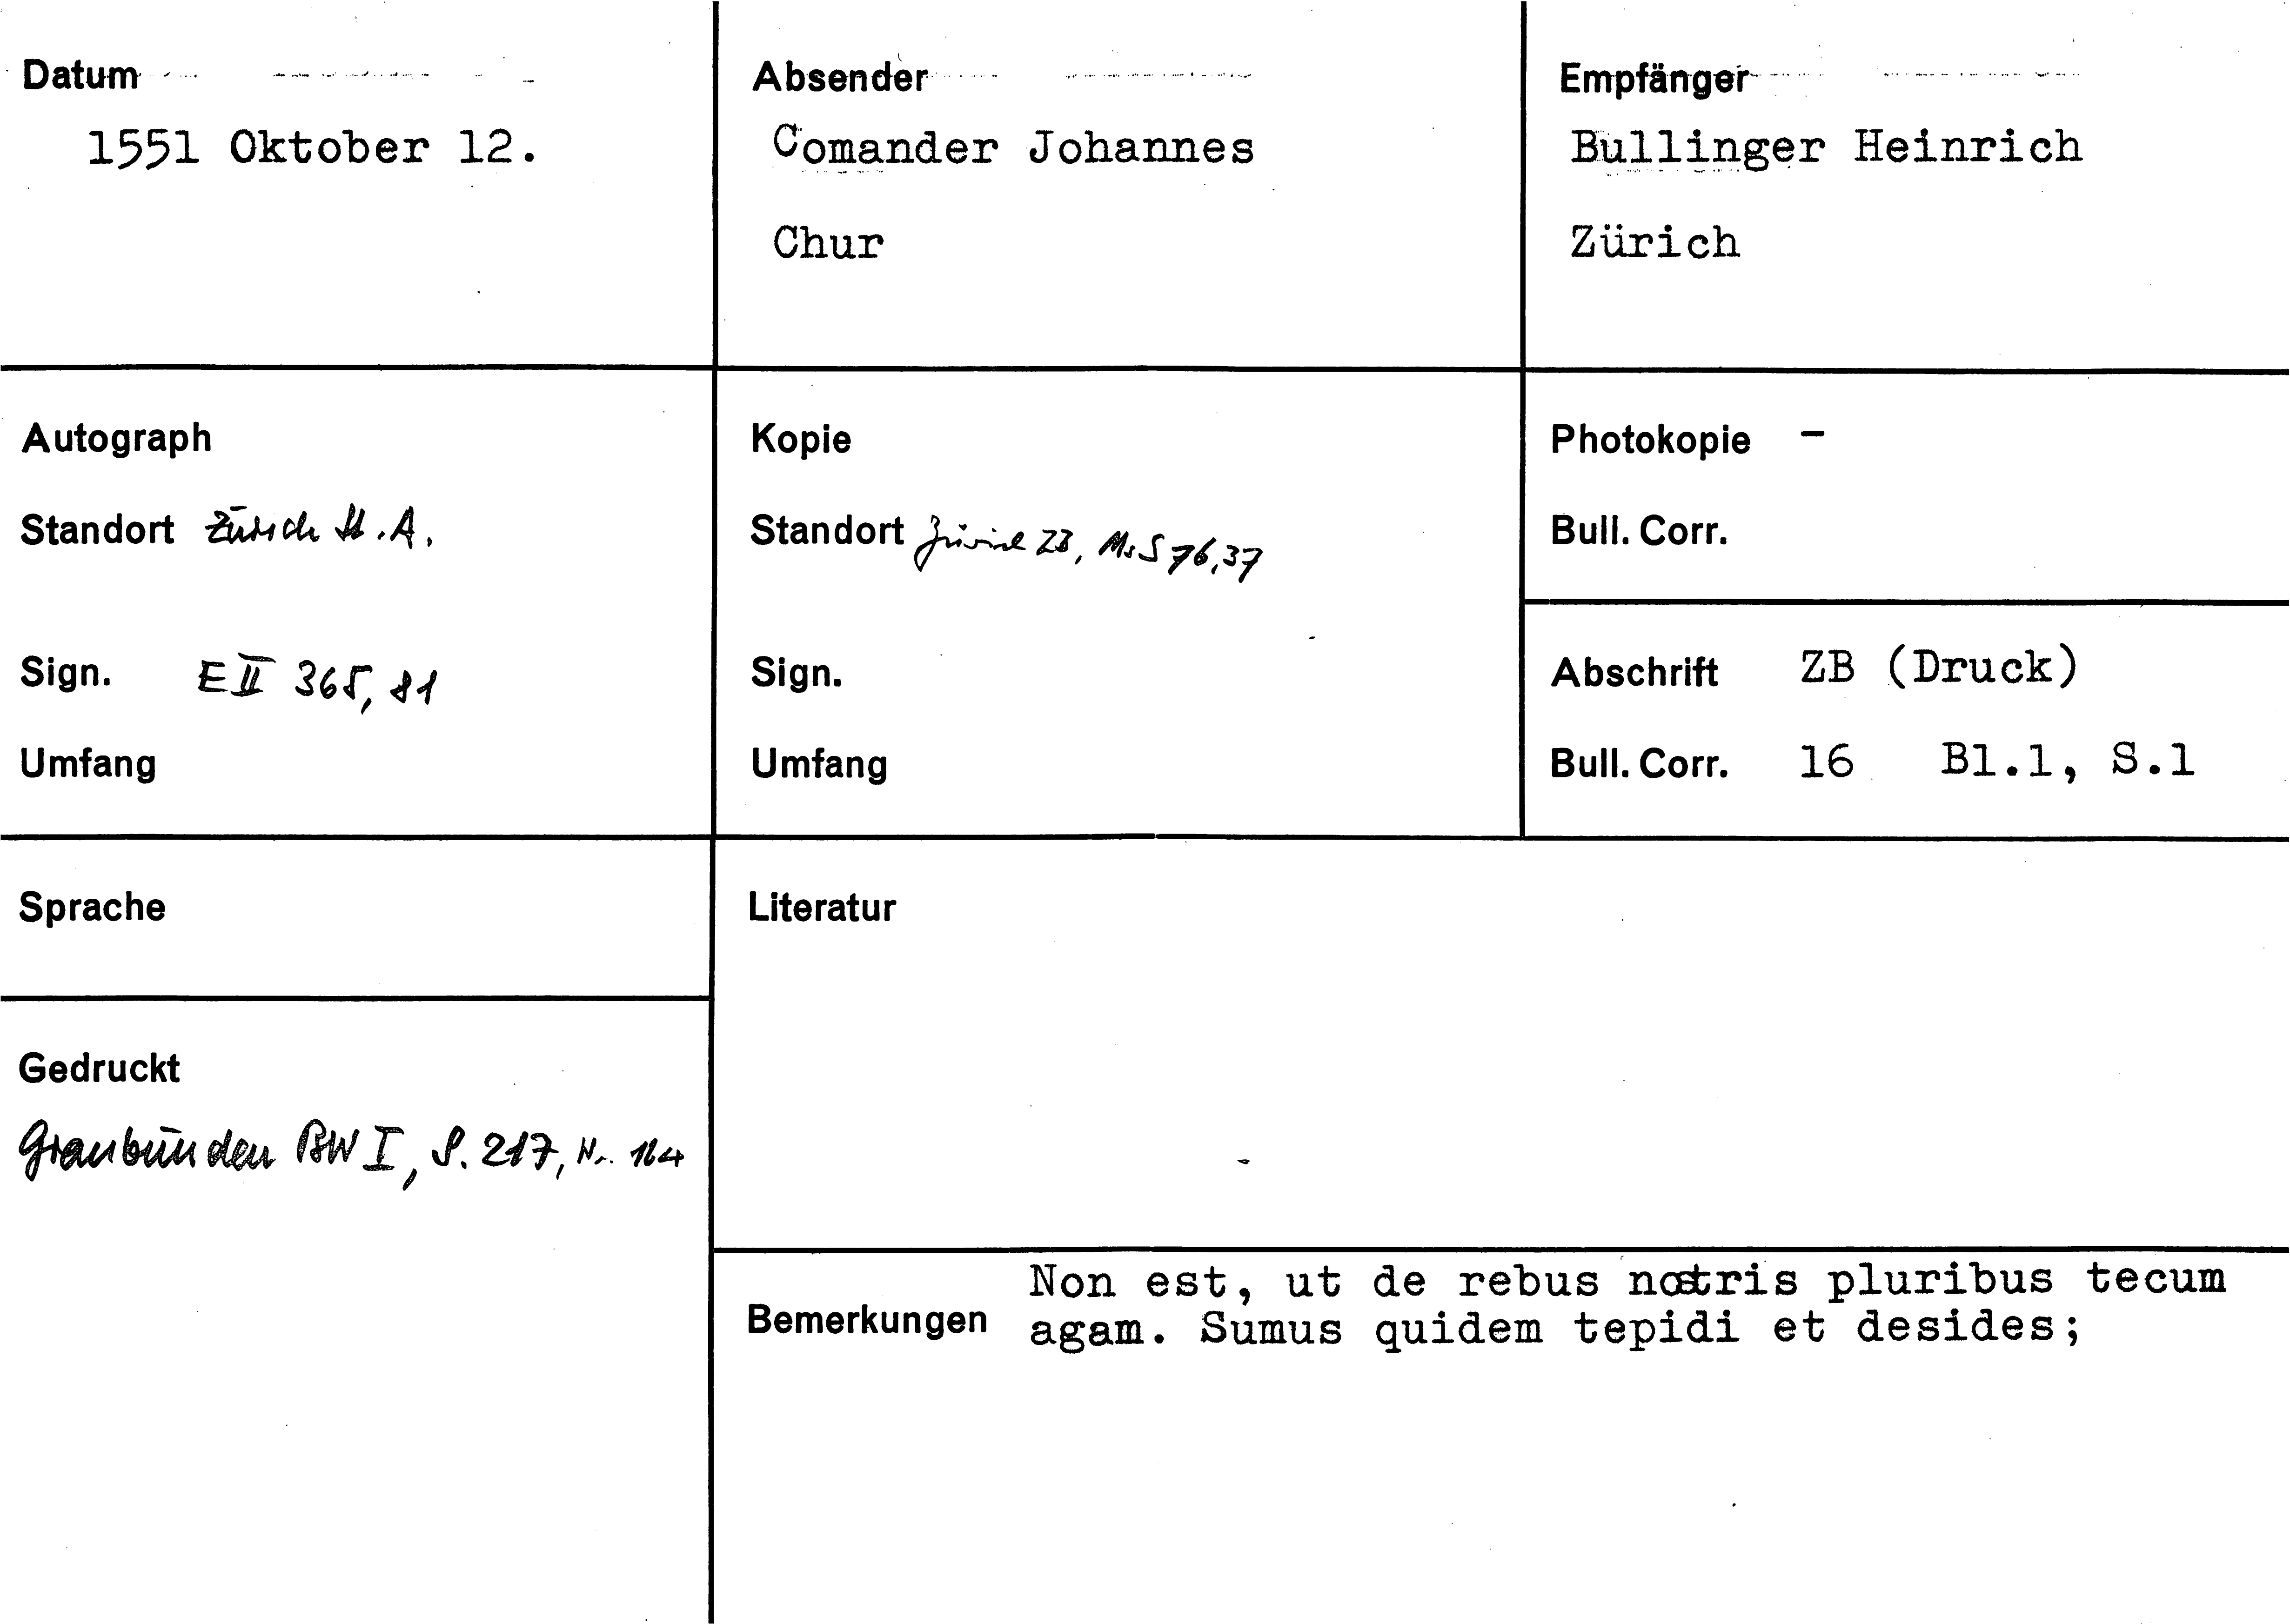 Datum
1551 Oktober 12.
Absender
Comander Johannes
Chur
Empfänger
Bullinger Heinrich
Zürich
Autograph
Standort Zürich St.A.
Sign. E II 365, 81
Umfang
Kopie
Standort Zürich ZB, Ms S 76,37
Sign.
Umfang
Photokopie -
Bull. Corr.
Abschrift ZB (Druck)
Bull. Corr. 16 Bl.1, S.1
Sprache
Gedruckt
Graubünden BW I, S. 217, Nr. 164
Literatur
Bemerkungen
Non est, ut de rebus nostris pluribus tecum
agam. Sumus quidem tepidi et desides;